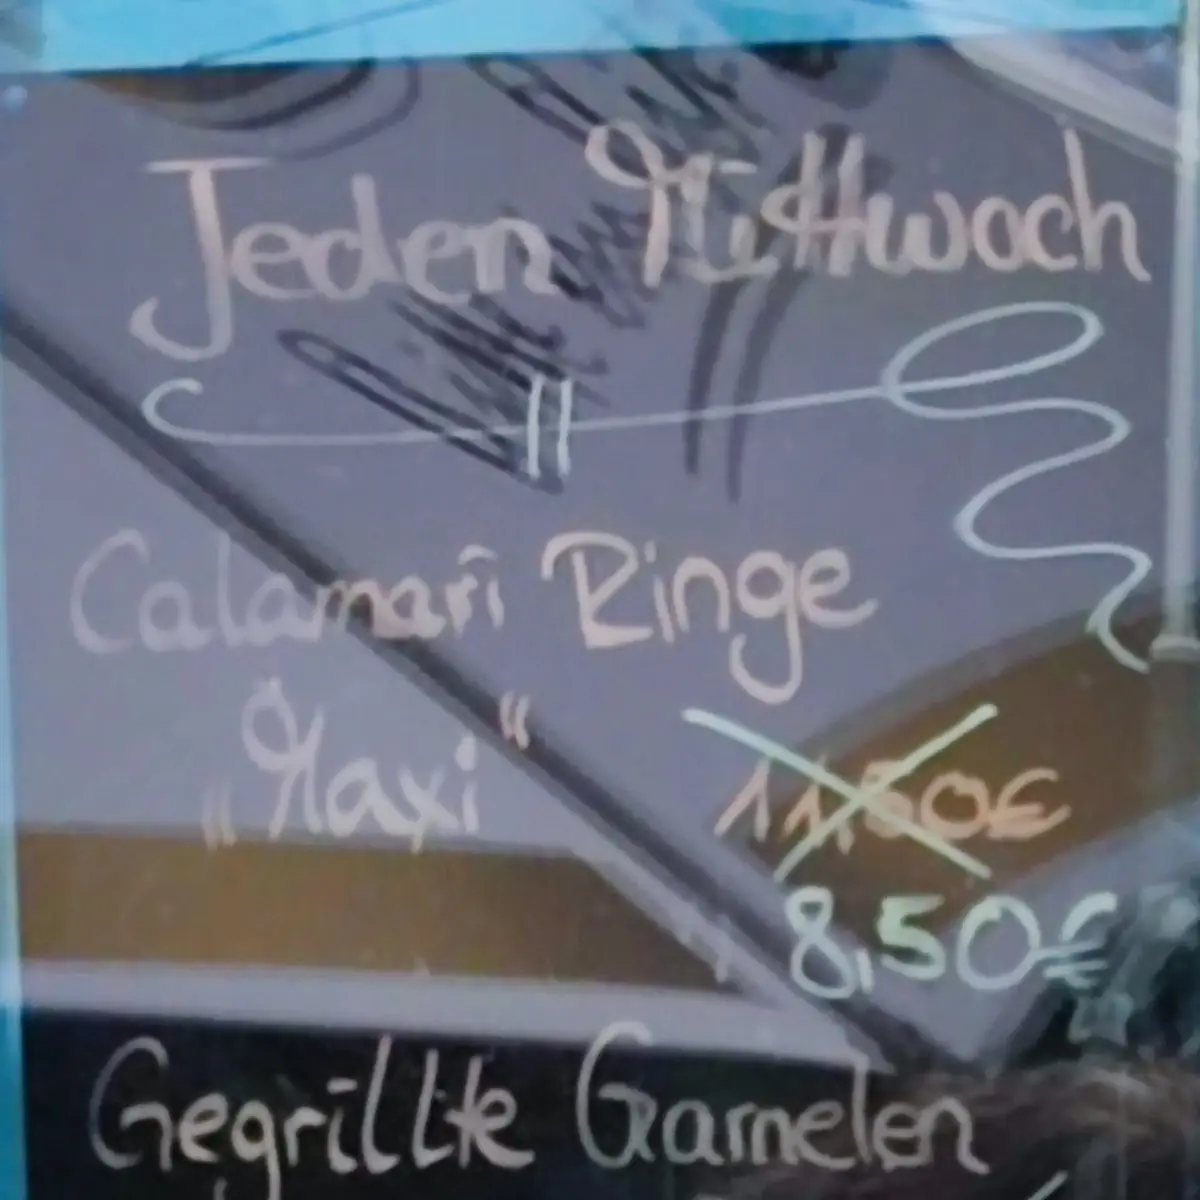 Jeden Mittwoch
Calamari Ringe
„Maxi“
11,50€
8,50€
Gegrillte Garnelen